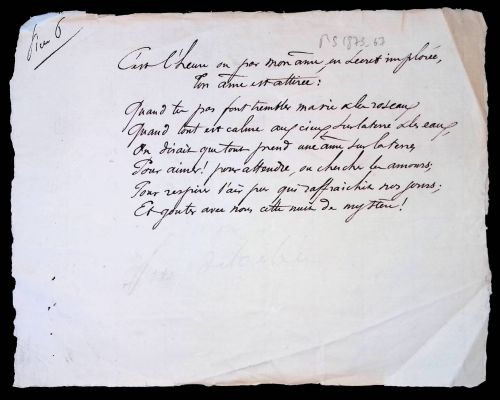 Ms 1873-67
C'est l'heure ou par mon âme en secret implorée,
Ton âme est attirée :
Quand tes pas font trembler ma vie et les roseaux,
Quand tout est calme aux cieux sur la terre et les eaux,
On dirait que tout prend une âme sur la terre,
Pour aimer ! pour attendre, ou chercher les amours ;
Pour respirer l'air pur qui raffraichit nos jours ;
Et gouter avec nous cette nuit de mystère !